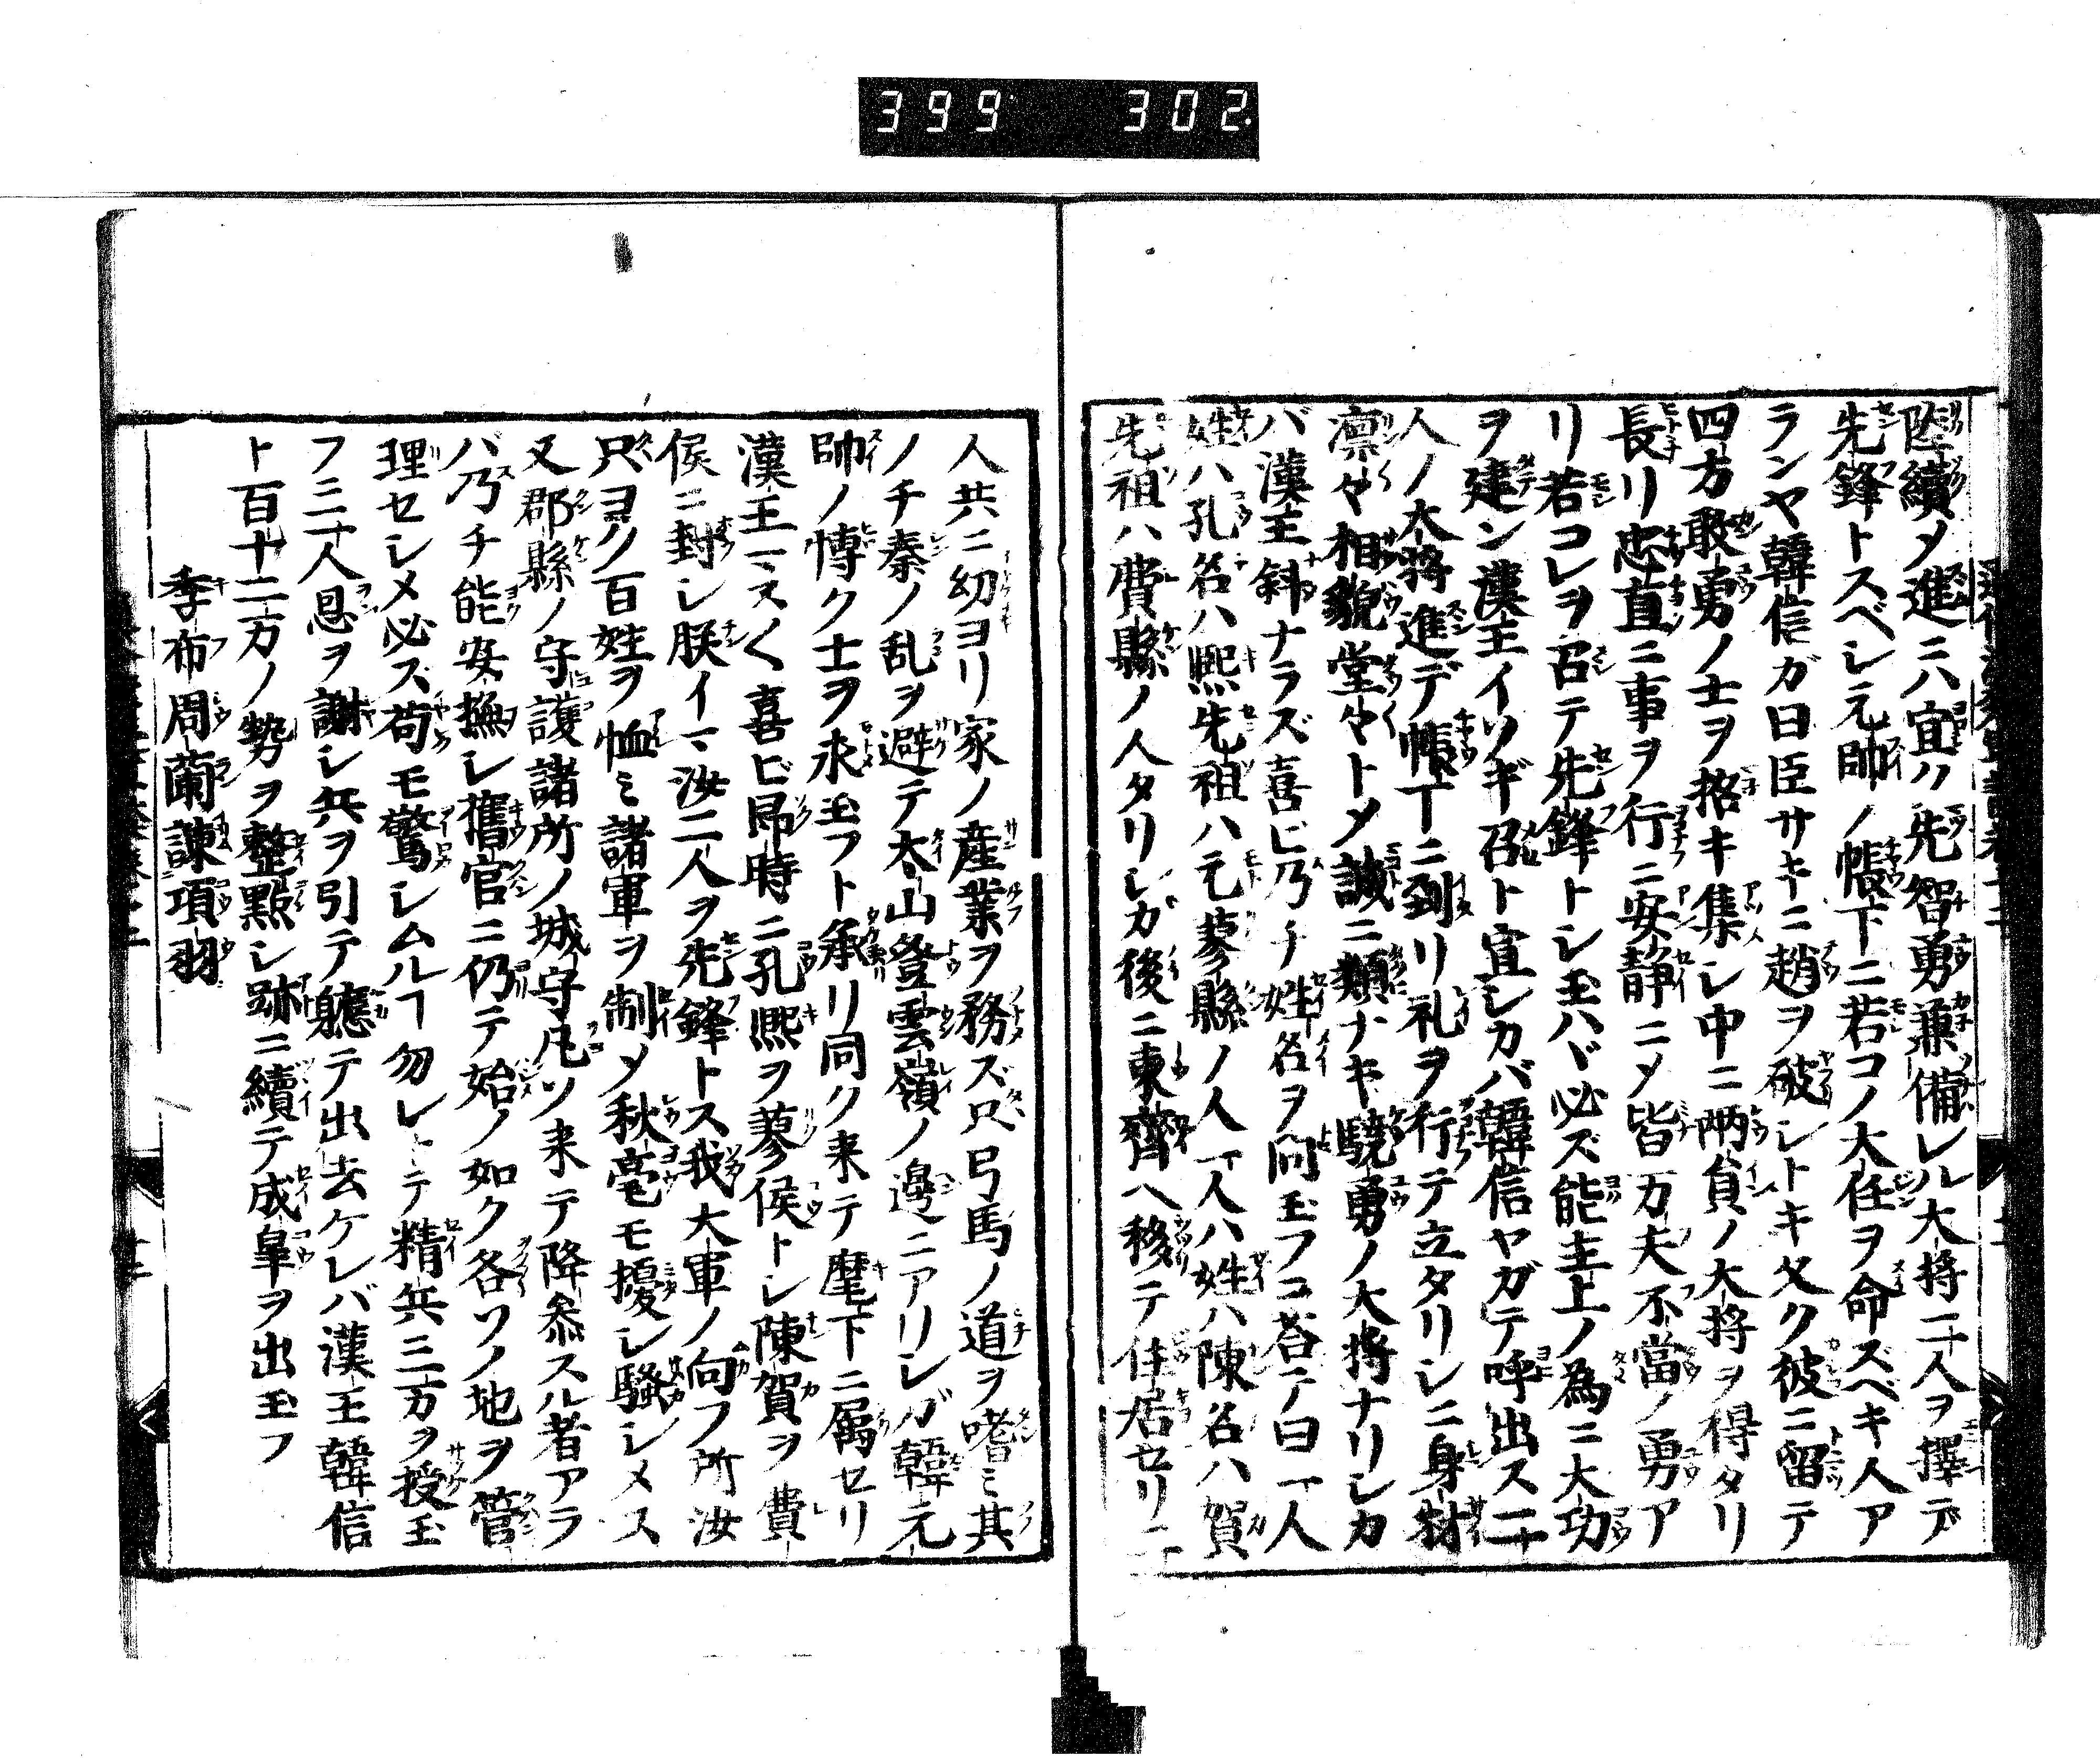 399 302
陸續メ進ニハ宜ク先智勇兼備レル大将二人ヲ擇デ
先鋒トスベレ元帥ノ帳下ニ若コノ大任ヲ命ズベキ人ア
ランヤ韓信ガ曰臣サキニ趙ヲ破レトキ久ク彼ニ留テ
四方敢勇ノ士ヲ招キ集レ中ニ両負ノ大将ヲ得タリ
長リ忠直ニ事ヲ行ニ安静ニメ皆万夫不當ノ勇ア
リ若コレヲ召テ先鋒トレ玉ハヾ必ズ能主上ノ為ニ大功
ヲ建ン漢王イソギ召ト宣レカバ韓信ヤガテ呼出ス二
人ノ大将進デ帳下ニ到リ礼ヲ行テ立タリレニ身材
凛々相貌堂々トメ誠ニ類ナキ驍勇ノ大将ナリレカ
バ漢王斜ナラズ喜ビ乃チ姓名ヲ問玉フニ荅テ曰一人
姓ハ孔名ハ熙先祖ハ元蓼縣ノ人一人ハ姓ハ陳名ハ賀
先祖ハ費縣ノ人タリレガ後ニ東齊ヘ移テ住居セリ二
人共ニ幼ヨリ家ノ産業ヲ務ズ只弓馬ノ道ヲ嗜ミ其
ノチ秦ノ乱ヲ避テ太山登雲嶺ノ邊ニアリレガ韓元
帥ノ博ク士ヲ求玉フト承リ同ク来テ麾下ニ属セリ
漢王マスく喜ビ即時ニ孔熙ヲ蓼侯トレ陳賀ヲ費
侯ニ封レ朕イマ汝二人ヲ先鋒トス我大軍ノ向フ所汝
只ヨク百姓ヲ恤ミ諸軍ヲ制メ秋毫モ擾レ騒レメス
又郡縣ノ守護諸所ノ城守凡ソ来テ降参スル者アラ
バ乃チ能安撫レ舊官ニ仍テ始ノ如ク各ソノ地ヲ管
理セレメ必ズ苟モ驚レムルヿ勿レトテ精兵三万ヲ授玉
フ二人恩ヲ謝レ兵ヲ引テ軈テ出去ケレバ漢王韓信
ト百十二万ノ勢ヲ整點レ跡ニ續テ成皐ヲ出玉フ
季布周蘭諫項羽